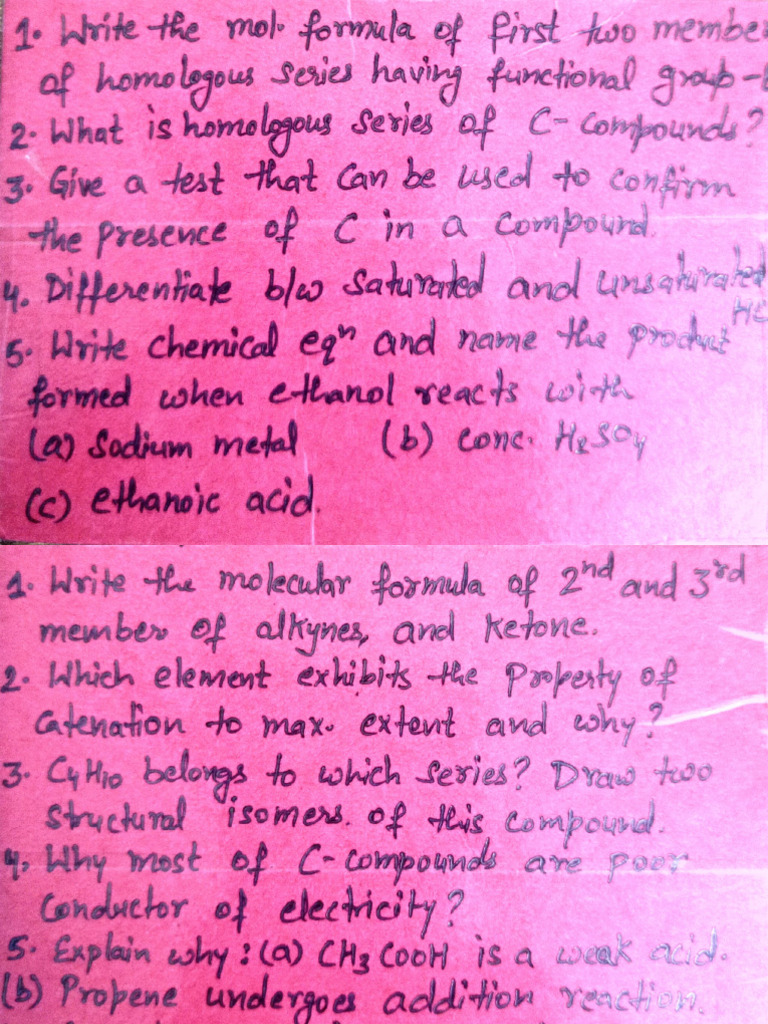 1. Write the mol. formula of first two membe
of homologous series having functional group-
2. What is homologous series of C-compounds?
3. Give a test that can be used to confirm
the presence of C in a compound.
4. Differentiate b/w saturated and unsaturated
HC
5. Write chemical eqⁿ and name the product
formed when ethanol reacts with
(a) Sodium metal (b) conc. H₂SO₄
(c) ethanoic acid.
1. Write the molecular formula of 2nd and 3rd
member of alkynes, and ketone.
2. Which element exhibits the property of
catenation to max. extent and why?
3. C₄H₁₀ belongs to which series? Draw two
structural isomers. of this compound.
4, Why most of C-compounds are poor
conductor of electricity?
5. Explain why : (a) CH₃COOH is a weak acid.
(b) Propene undergoes addition reaction.